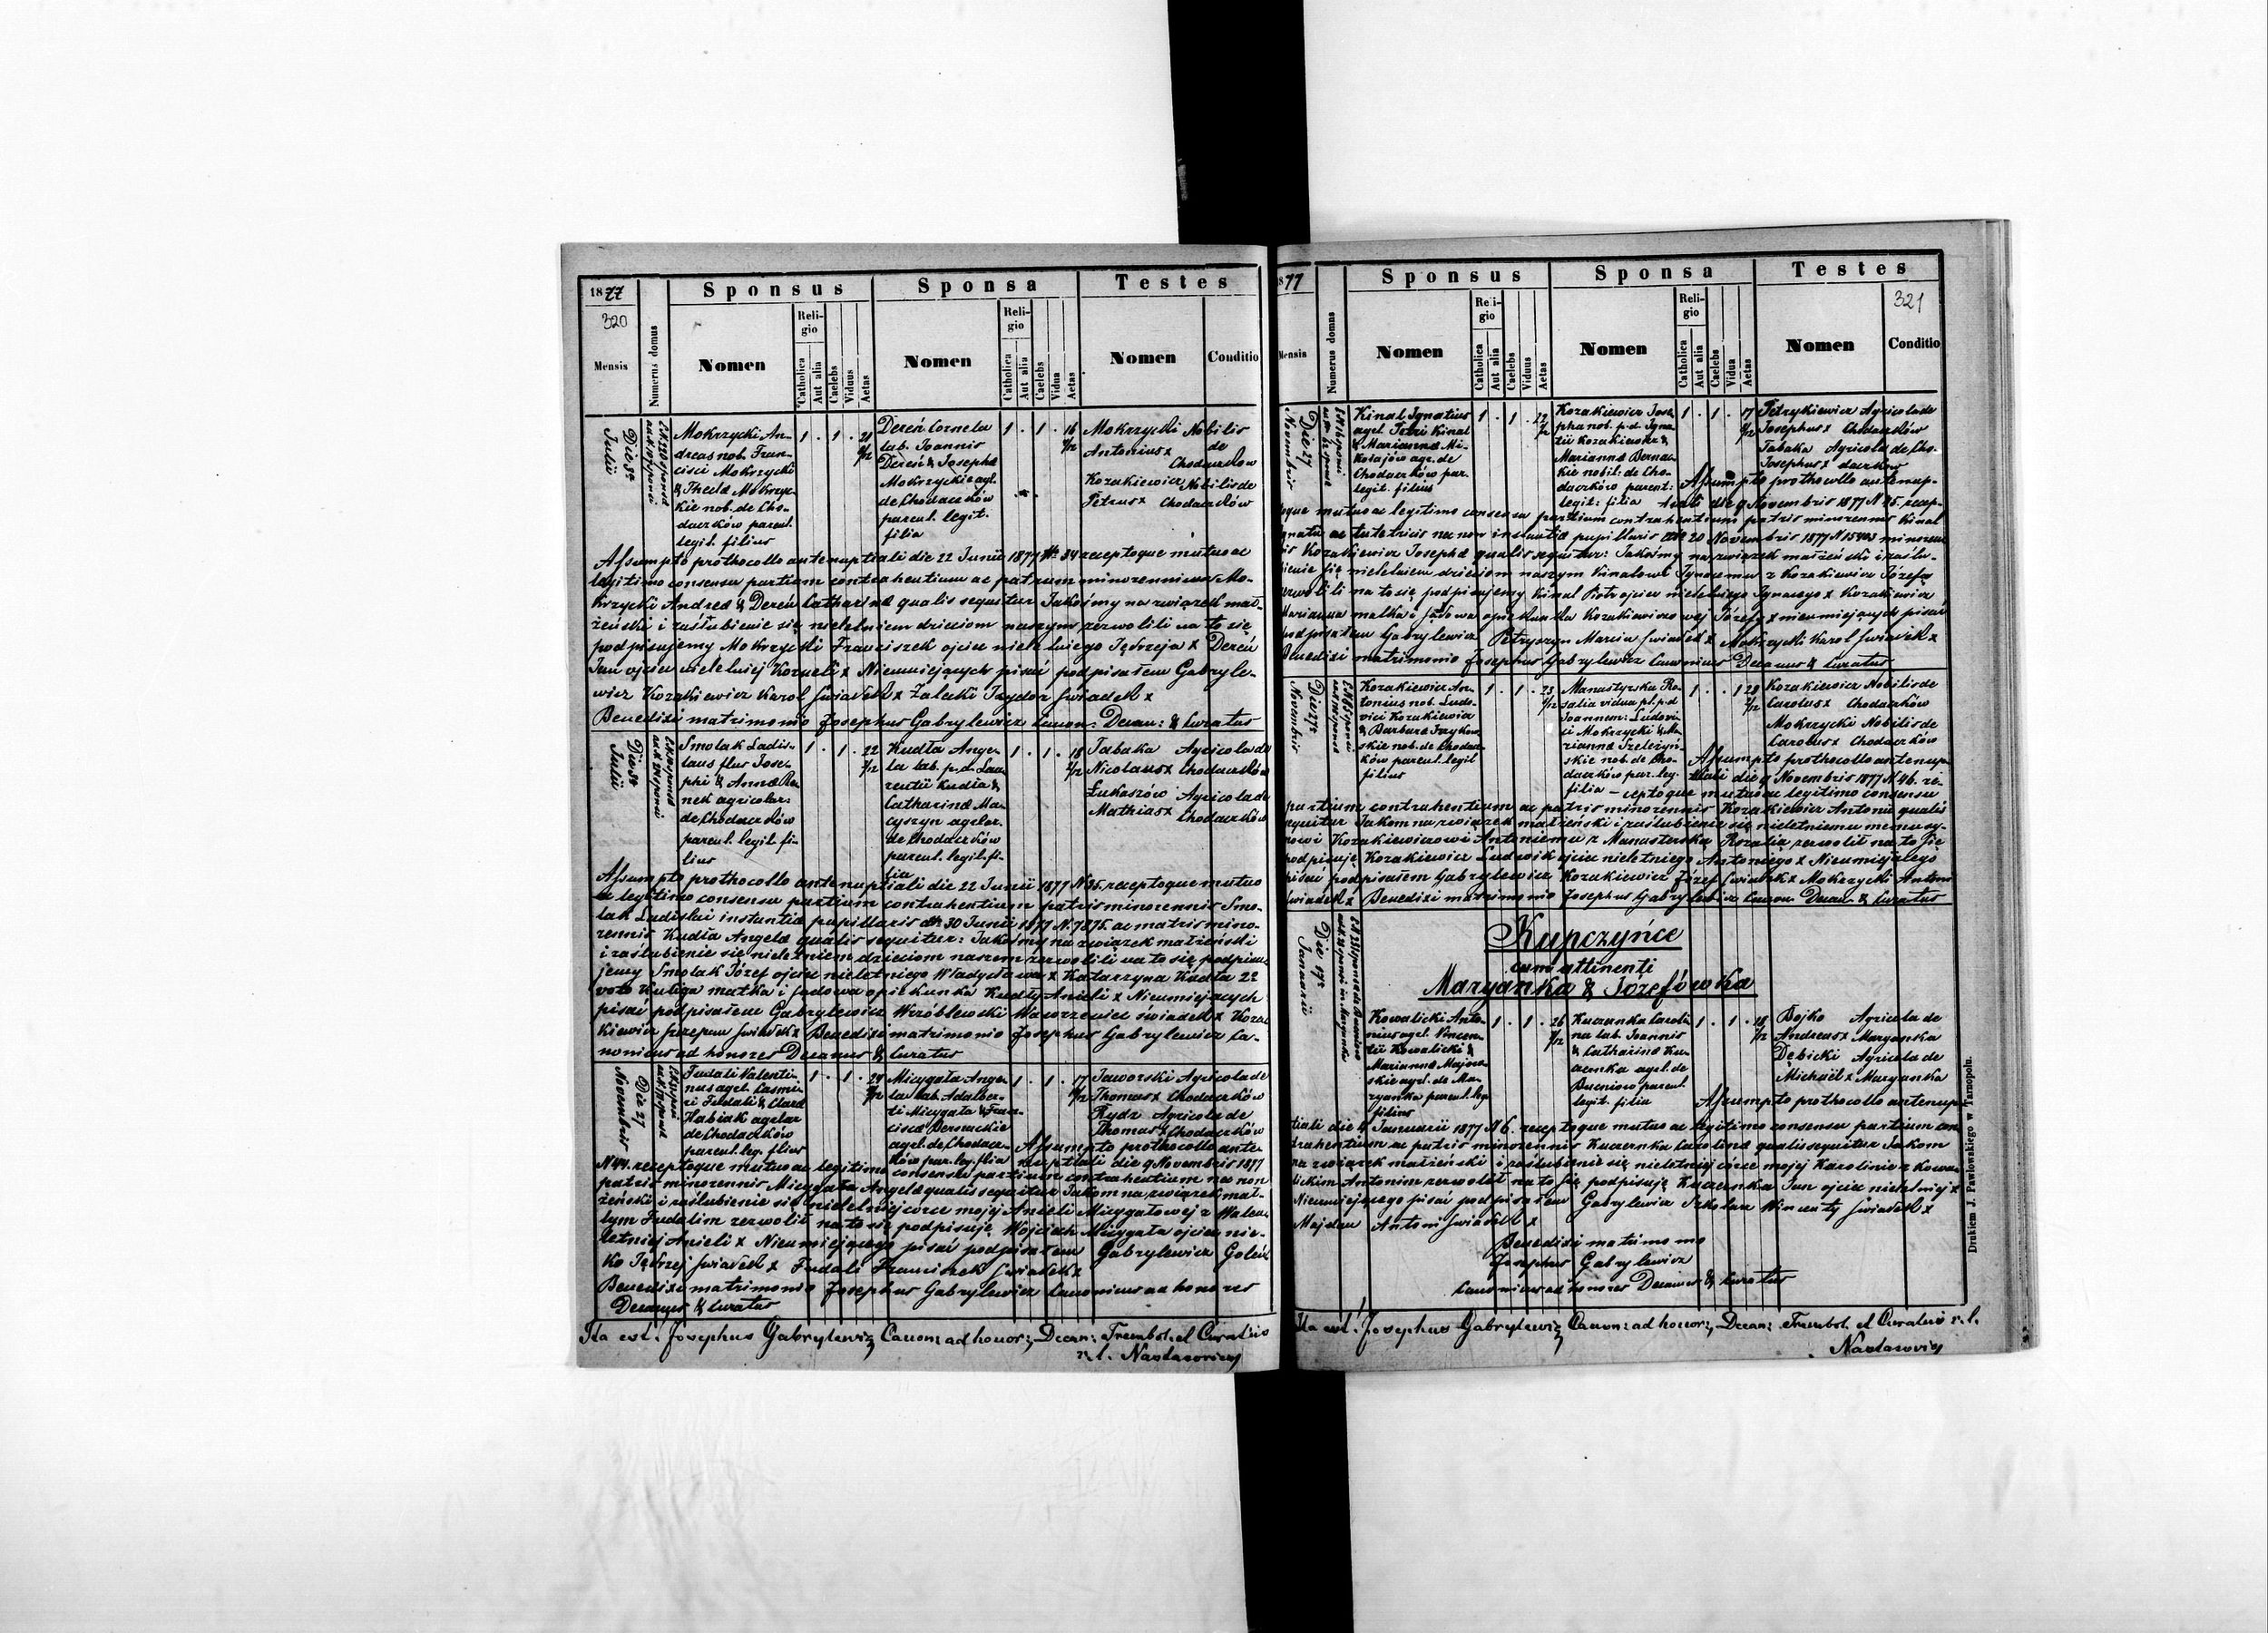 1877
320
Mensis
Numerus domus
Sponsus
Nomen
Religio
Catholica
Aut alia
Caelebs
Viduus
Aetas
Sponsa
Nomen
Religio
Catholica
Aut alia
Caelebs
Vidua
Aetas
Testes
Nomen
Conditio
Julii
Die 8va
Mokrzycki An-
dreas nob. Fran-
cisci Mokrzycki
& Theclæ Mokrzyc-
kie nob. de Cho-
daczków parent.
legit. filius
1 . 1 . 21
Dereń Cornela
lab. Joannis
Dereń & Josephæ
Mokrzyckie agl.
de Chodaczków
parent. legit.
filia
1 . 1 . 16
Mokrzycki Nobilis
Antonius x de
Chodaczków
Kozakiewicz Nobilis de
Petrus x Chodaczków
Assumpto prothocollo antenuptiali die 22 Junii 1877 N 34 receptoque mutuo ac
legitimo consensu partium contrahentium ac patrum minorennium Mo-
krzycki Andreæ & Dereń Catharinæ qualis sequitur Jakośmy na związek mał-
żeński i zaślubienie się nieletniem dzieciom naszym zezwolili na to się
podpisujemy Mokrzycki Franciszek ojciec nieletniego Jędrzeja x Dereń
Jan ojciec nieletniej Korneli x Nieumiejących pisać podpisałem Gabryle-
wicz Kozakiewicz Karol świadek x Zalecki Izydor świadek x
Benedixi matrimonio Josephus Gabrylewicz Canon: Decan: & Curatus
Julii
Die 8va
Smolak Ladis-
laus flus Jose-
phi & Annæ Ra-
nek agricolar.
de Chodaczków
parent. legit. fi-
lius
1 . 1 . 22
Kudła Ange-
la lab. p.d. Lau-
rentii Kudła &
Catharinæ Ma-
cyszyn agrlar.
de Chodaczków
parent. legit. fi-
lia
1 . 1 . 18
Tabaka Agricola de
Nicolaus x Chodaczków
Łukaszów Agricola de
Mathias x Chodaczków
Assumpto prothocollo antenuptiali die 22 Junii 1877 N 35. receptoque mutuo
ac legitimo consensu partium contrahentium patris minorennis Smo-
lak Ladislai instantiæ pupillaris dto 30 Junii 1877 N. 7875. ac matris mino-
rennis Kudła Angelæ qualis sequitur: Jakośmy na związek małżeński
i zaślubienie się nieletniem dzieciom naszem zezwolili na to się podpisu-
jemy Smolak Józef ojciec nieletniego Władysława x Katarzyna Kudła 2o
voto Kuliga matka i sądowa opiekunka Kudły Anieli x Nieumiejących
pisać podpisałem Gabrylewicz Wróblewski Wawrzeniec świadek x Koza-
kiewicz Szczepan świadek x Benedixi matrimonio Josephus Gabrylewicz Ca-
nonicus ad honores Decanus & Curatus
Novembris
Die 27
Fudali Valenti-
nus agrl. Casimi-
ri Fudali & Claræ
Habiak agrlar
de Chodaczków
parent. leg. flius
1 . 1 . 24
Micygała Ange-
la lab. Adalber-
ti Micygała & Fran-
ciscæ Bernackie
agrl. de Chodacz-
ków par. leg. flia
1 . 1 . 17
Jaworski Agricola de
Thomas x Chodaczków
Rydz Agricola de
Thomas x Chodaczków
Assumpto prothocollo ante-
nuptiali die 9 Novembris 1877
N 44. receptoque mutuo ac legitimo consensu partium contrahentium nec non
patris minorennis Micygała Angelæ qualis sequitur Jakom na związek mał-
żeński i zaślubienie się nieletniej córce mojej Anieli Micygałowej z Walen-
tym Fudalim zezwolił na to się podpisuję Wojciech Micygała ojciec nie-
letniej Anieli x Nieumiejącego pisać podpisałem Gabrylewicz Goleń-
ko Jędrzej świadek x Fudali Franciszek świadek x
Benedixi matrimonio Josephus Gabrylewicz Canonicus ad honores
Decanus & Curatus
Ita est. Josephus Gabrylewicz Canon: ad honor: Decan: Trembol. et Curatus
r. l. Nastasoviens
1877
321
Mensis
Numerus domus
Sponsus
Nomen
Religio
Catholica
Aut alia
Caelebs
Viduus
Aetas
Sponsa
Nomen
Religio
Catholica
Aut alia
Caelebs
Vidua
Aetas
Testes
Nomen
Conditio
Novembris
Die 27
Kinal Ignatius
agrl. Petri Kinal
& Mariannæ Mi-
kołajów agr. de
Chodaczków par.
legit. filius
1 . 1 . 22
Kozakiewicz Jose-
pha nob. p.d. Igna-
tii Kozakiewicz &
Mariannæ Bernac-
kie nobil: de Cho-
daczków parent:
legit: filia
1 . 1 . 17
Petrykiewicz Agricola de
Josephus x Chodaczków
Tabaka Agricola de Cho-
Josephus x daczków
Assumpto prothocollo antenup-
tiali die 9 Novembris 1877 N 45. recep-
toque mutuo ac legitimo consensu partium contrahentium patris minorennis Kinal
Ignatii ac tutetricis nec non instantiæ pupillaris dto 20 Novembris 1877 N 15403 minoren-
nis Kozakiewicz Josephæ qualis sequitur: Jakośmy na związek małżeński i zaślu-
bienie się nieletniem dzieciom naszym Kinalowi Ignacemu z Kozakiewicz Józefą
zezwolili na to się podpisujemy Kinal Piotr ojciec nieletniego Ignacego x Kozakiewicz
Marianna matka i sądowa opiekunka Kozakiewiczowej Józefy x nieumiejących pisać
podpisałem Gabrylewicz Petryszyn Marcin świadek x Mokrzycki Karol świadek x
Benedixi matrimonio Josephus Gabrylewicz Canonicus Decanus & Curatus
Novembris
Die 27
Kozakiewicz An-
tonius nob. Ludo-
vici Kozakiewicz
& Barbaræ Irzykow-
skie nob. de Chodacz-
ków parent. legit
filius
1 . 1 . 23
Manastyrska Ro-
salia vidua pt. p.d
Joannem: Ludovi-
ci Mokrzycki & Ma-
riannæ Szeleżyń-
skie nob. de Cho-
daczków par. leg.
filia
1 . . 1 28
Kozakiewicz Nobilis de
Carolus x Chodaczków
Mokrzycki Nobilis de
Carolus x Chodaczków
Assumpto prothocollo antenup-
tiali die 9 Novembris 1877 N 46. re-
ceptoque mutuo ac legitimo consensu
partium contrahentium ac patris minorennis Kozakiewicz Antonii qualis
sequitur Jakom na związek małżeński i zaślubienie się nieletniemu memu sy-
nowi Kozakiewiczowi Antoniemu z Manasterską Rozalią zezwolił na to się
podpisuję Kozakiewicz Ludwik ojciec nieletniego Antoniego x Nieumiejącego
pisać podpisałem Gabrylewicz Kozakiewicz Józef świadek x Mokrzycki Antoni
świadek x Benedixi matrimonio Josephus Gabrylewicz Canon. Decan. & Curatus
Kupczyńce
cum attinenti
Maryanka & Józefówka
Januarii
Die 17
Kowalicki Anto-
nius agrl. Vincen-
tii Kowalicki &
Mariannæ Majew-
skie agrl. de Ma-
ryanka parent. leg
filius
1 . 1 . 26
Kuczenka Caroli-
na lab. Joannis
& Catharinæ Ku-
czenka agrl. de
Bucniow parent.
legit. filia
1 . 1 . 18
Bojko Agricola de
Andreas x Maryanka
Dębicki Agricola de
Michaël x Maryanka
Assumpto prothocollo antenup-
tiali die 4 Januarii 1877 N 6. receptoque mutuo ac legitimo consensu partium con-
trahentium ac patris minorennis Kuczenka Carolinæ qualis sequitur Jakom
na związek małżeński i zaślubienie się nieletniej córce mojej Karolinie z Kowa-
lickim Antonim zezwolił na to się podpisuję Kuczenka Jan ojciec nieletniej x
Nieumiejącego pisać podpisałem Gabrylewicz Szkolar Wincenty świadek x
Majdan Antoni świadek x
Benedixi matrimonio
Josephus Gabrylewicz
Canonicus ad honores Decanus & Curatus
Ita est. Josephus Gabrylewicz Canon: ad honor: Decan: Trembol. et Curatus r. l.
Nastasoviens
Drukiem J. Pawłowskiego w Tarnopolu.